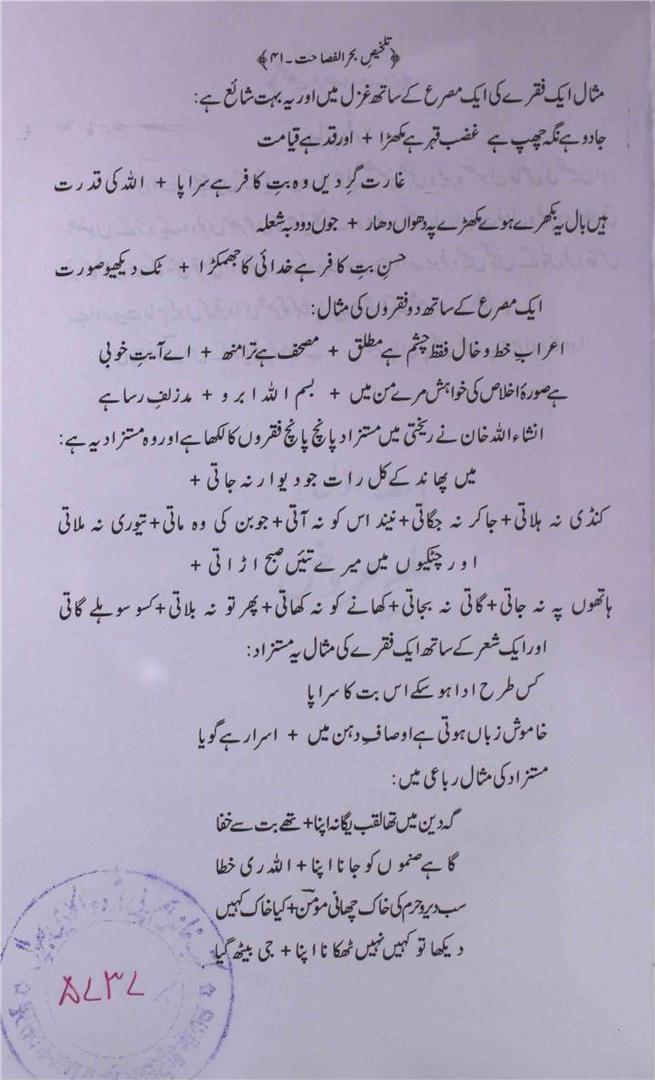 ﴿تلخیص بحر الفصاحت۔۴۱﴾
مثال ایک فقرے کی ایک مصرع کے ساتھ غزل میں اور یہ بہت شائع ہے:
جادو ہے نگہ چھپ ہے غضب قہر ہے مکھڑا + اور قد ہے قیامت
غارت گرِ دیں وہ بتِ کافر ہے سراپا + اللہ کی قدرت
ہیں بال یہ بکھرے ہوے مکھڑے پہ دھواں دھار + جوں دود بہ شعلہ
حسنِ بتِ کافر ہے خدائی کا جھمکڑا + ٹک دیکھیو صورت
ایک مصرع کے ساتھ دو فقروں کی مثال:
اعرابِ خط و خال فقط چشم ہے مطلق + مصحف ہے ترا منھ + اے آیتِ خوبی
ہے صورۂ اخلاص کی خواہش مرے من میں + بسم اللہ ابرو + مد زلفِ رسا ہے
انشاء اللہ خان نے ریختی میں مستزاد پانچ پانچ فقروں کا لکھا ہے اور وہ مستزاد یہ ہے:
میں پھاند کے کل رات جو دیوار نہ جاتی +
کنڈی نہ ہلاتی + جا کر نہ جگاتی + نیند اس کو نہ آتی + جوبن کی وہ ماتی + تیوری نہ ملاتی
اور چٹکیوں میں میرے تئیں صبح اڑاتی +
ہاتھوں پہ نہ جاتی + گاتی نہ بجاتی + کھانے کو نہ کھاتی + پھر تو نہ بلاتی + کسو سو ہلے گاتی
اور ایک شعر کے ساتھ ایک فقرے کی مثال یہ مستزاد:
کس طرح ادا ہو سکے اس بت کا سراپا
خاموش زباں ہوتی ہے اوصافِ دہن میں + اسرار ہے گویا
مستزاد کی مثال رباعی میں:
گہ دین میں تھا لقب یگانہ اپنا + تھے بت سے خفا
گاہے صنموں کو جانا اپنا + اللہ ری خطا
سب دیر و حرم کی خاک چھانی مومن + کیا خاک کہیں
دیکھا تو کہیں نہیں ٹھکانا اپنا + جی بیٹھ گیا
۵۷۳۷